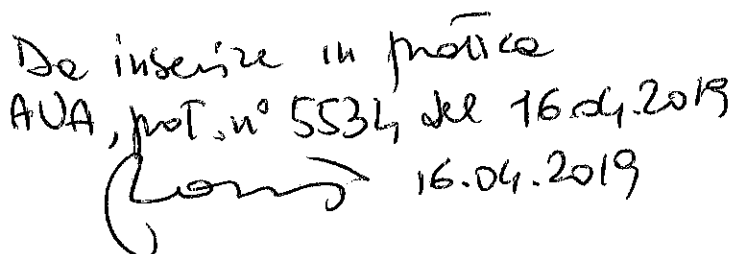 Da inserire in pratica
AUA, prot. n° 5534 del 16.04.2019
16.04.2019